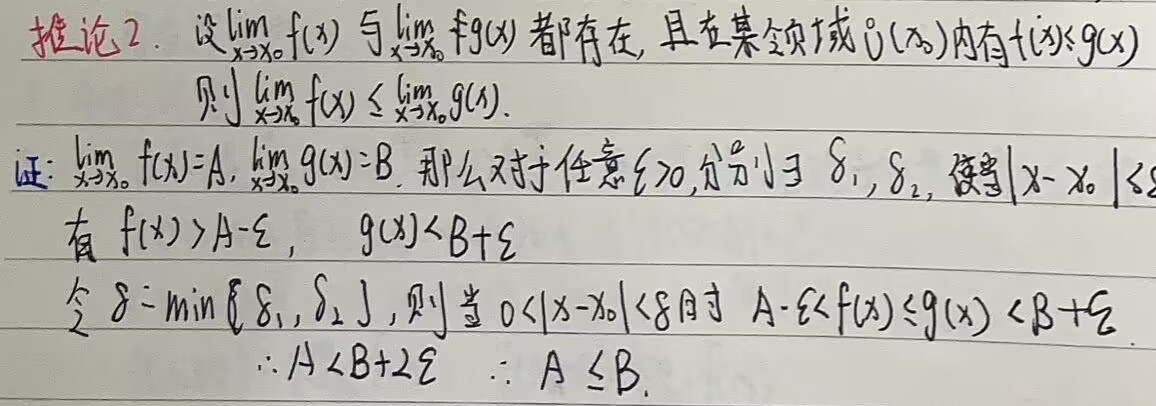 推论2. 设lim x→x₀ f(x) 与 lim x→x₀ g(x) 都存在, 且在某领域Ů(x₀)内有f(x)≤g(x)
则 lim x→x₀ f(x) ≤ lim x→x₀ g(x).
证: lim x→x₀ f(x)=A, lim x→x₀ g(x)=B. 那么对于任意ε>0, 分别∃ δ₁, δ₂, 使当|x-x₀|<δ
有 f(x)>A-ε, g(x)<B+ε
令 δ=min{δ₁, δ₂}, 则当 0<|x-x₀|<δ时 A-ε<f(x)≤g(x)<B+ε.
∴A<B+2ε ∴ A≤B.